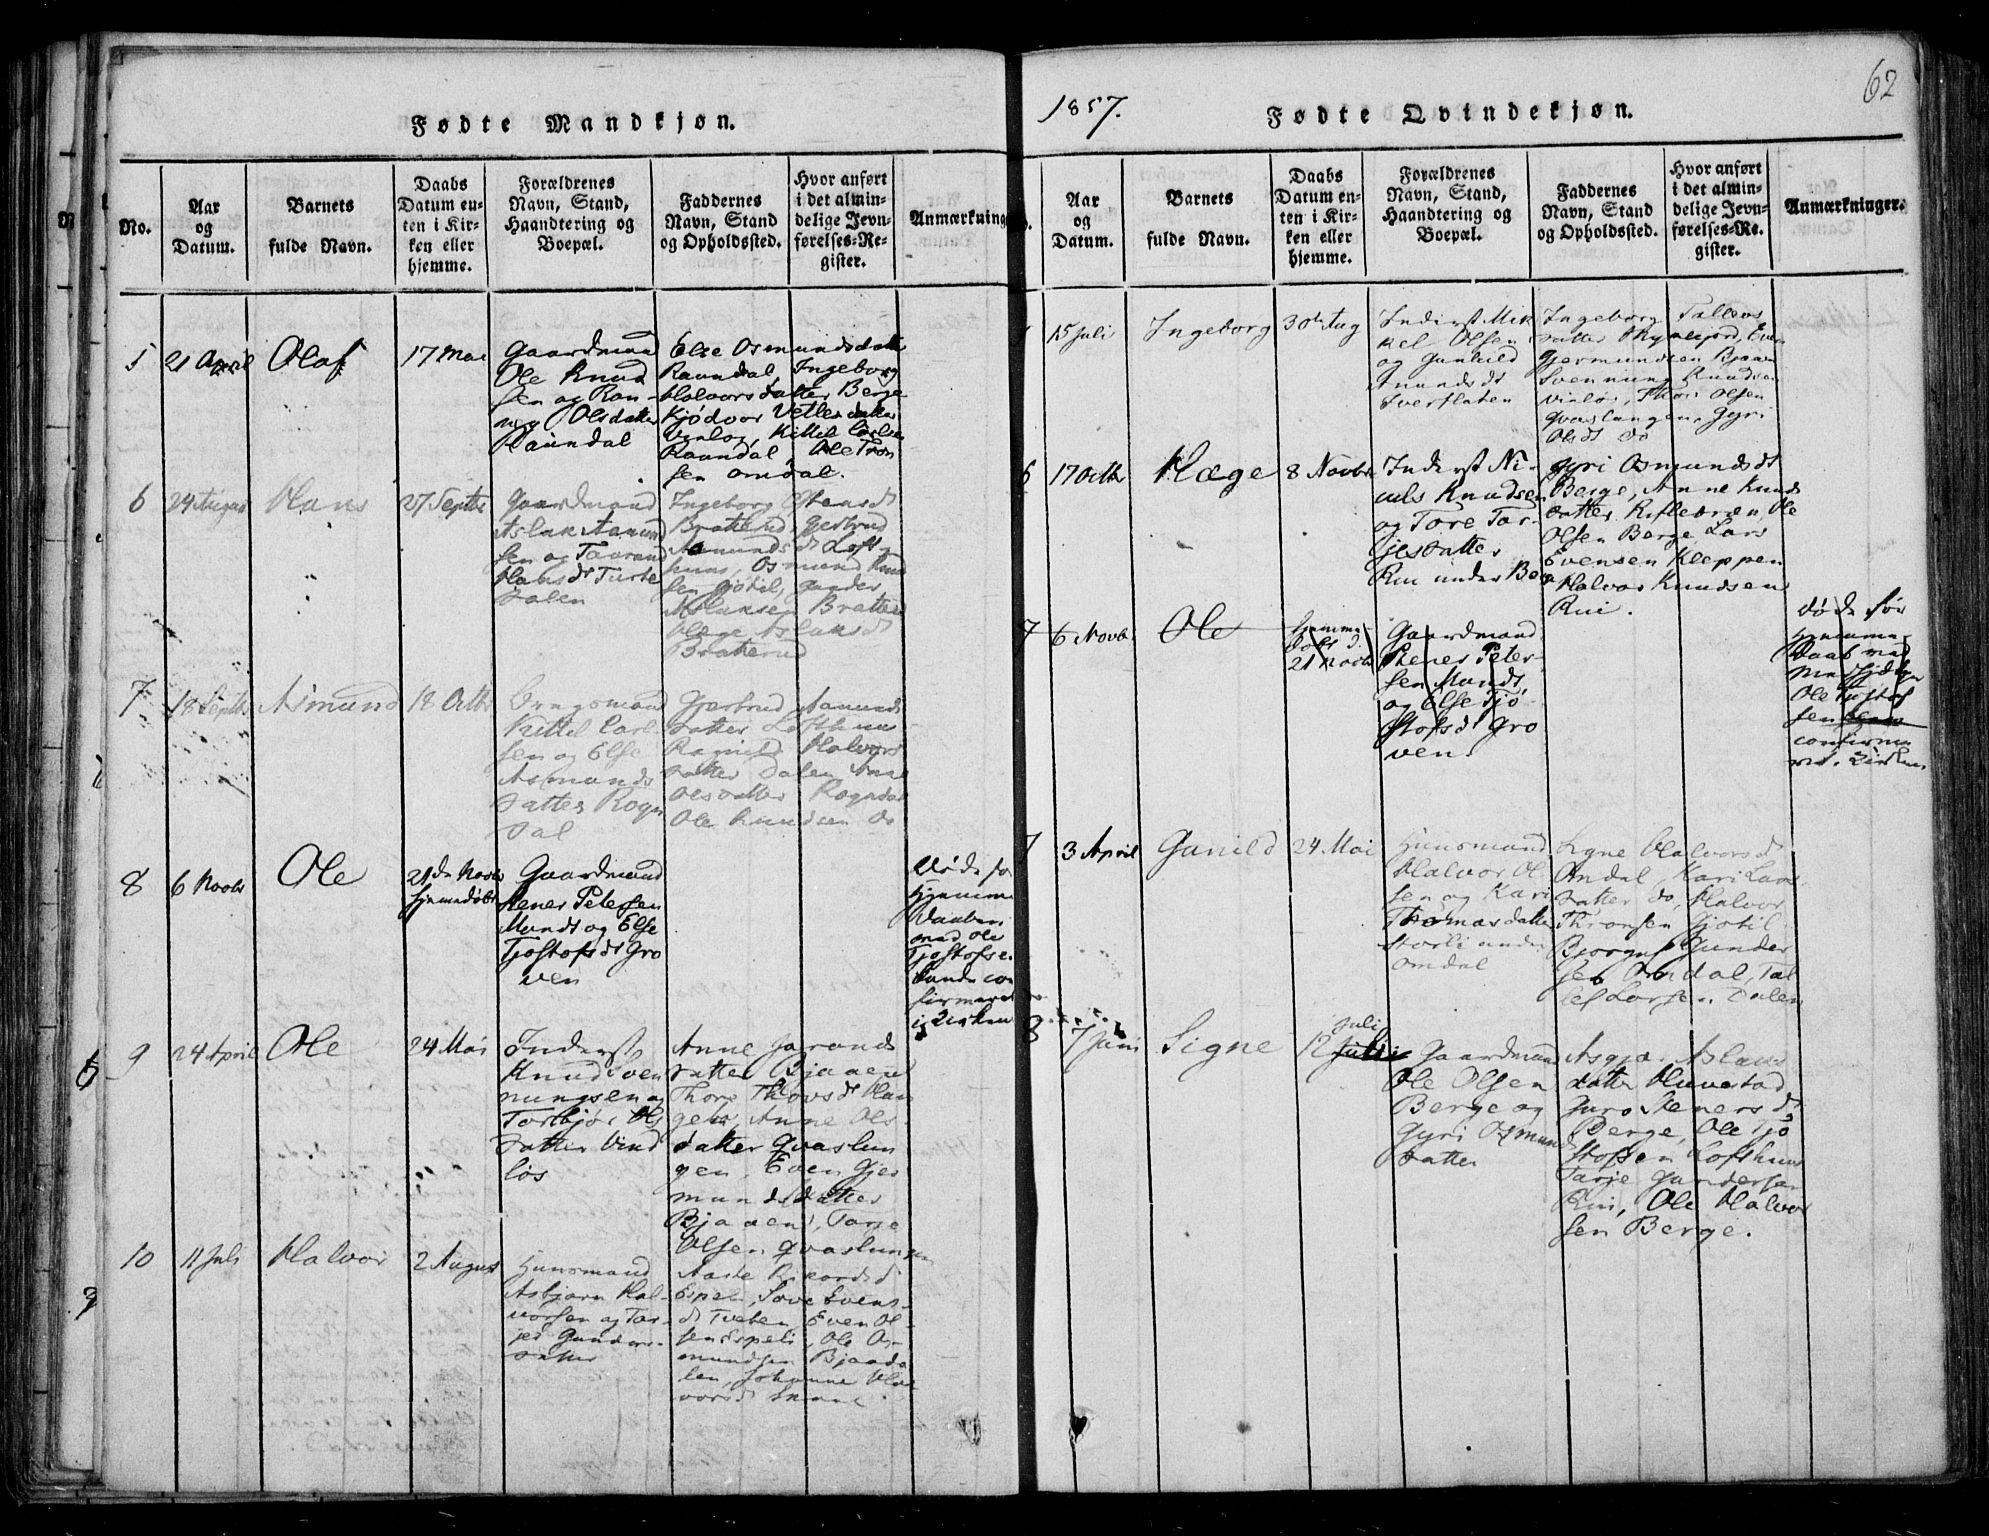 1857.
62
Fødte Mandkjøn.
No.
Aar
og
Datum.
Barnets
fulde Navn.
Daabs
Datum en-
ten i Kir-
ken eller
hjemme.
Forældrenes
Navn, Stand,
Haandtering og
Boepæl.
Faddernes
Navn, Stand
og Opholdssted.
Hvor anført
i det almin-
delige Jevn-
førelses-Re-
gister.
Anmærkning
5
21 April
Olaf
17 Mai
Gaardmand
Ole Knud
sen og Ran-
neg Olsdatter
Raundal
Else Osmundsdatter
Raundal Ingeborg
Halvorsdatter Berge
Kjødvor Vetlesdatter
Vinløs, Kittil Carlsen
Raundal, Ole Tron
sen Omdal.
6
24 August
Hans
27 Septbr
Gaardmand
Aslak Aanund
sen og Taaran
Hansdt Turte
dalen
Ingeborg Stensdt
Brakerud, Gertrud
Aanundsdt Loft
huus, Osmund Knud
sen Gjøtil, Gunder
Aslaksen Bratten
Hæge Aslaksdt
Brakerud
7
18 Septbr
Asmund
18 Octbr
Brugsmand
Kittil Carl
sen og Else
Asmunds
datter Rogn
dal
Gjertrud Aanunds
datter Lofthuus
Ragnild Halvors
datter Dalen Anne
Olsdatter Rogndal
Ole Knudsen do
8
6 Novbr
Ole
21de Novbr
hjemedøbt
Gaardmand
Stener Petersen
Mandt og Else
Tjostofsdt Gro
ven
Døde før
hjemme
daaben
mad Ole
Tjostofsen
kunde con
firmeret
i Kirken
9
24 April
Ole
24 Mai
Inderst
Knud Sven
nungsen og
Torbjør Ols
datter Vind
løs
Anne Jorands
datter Bjaaen
Thore Thovsdt Hau
gen, Anne Ols-
datter Qvaslun
gen, Even Gjer
mundsdatter
Bjaaen, Tarje
Olsen Qvaslungen
10
11 Juli
Halvor
2 August
Huusmand
Asbjørn Hal-
vorsen og Tar-
jer Gunders-
datter
Aaste Rikardsdt
Espeli, Tove Evens-
dt Tveten Even Ol-
sen Espeli, Ole As-
mundsen Bjaada
len, Johanne Hal
vorsdt
Fødte Qvindekjøn.
Aar
og
Datum.
Barnets
fulde Navn.
Daabs
Datum en-
ten i Kir-
ken eller
hjemme.
Forældrenes
Navn, Stand,
Haandtering og
Boepæl.
Faddernes
Navn, Stand
og Opholdssted.
Hvor anført
i det almin-
delige Jevn-
førelses-Re-
gister.
Anmærkninger.
15 Juli
Ingeborg
30te Aug
Inderst Mik
kel Olsen
og Gunhild
Anundsdt
Sverflaten
Ingeborg Tallevs
datter Even
Gjermundsen Bjaaen
Svennung Knudsen
Vinløs, Thor Olsen
Qvaslungen, Gyri
Olsdt do
6
17 Octbr
Hæge
8 Novbr
Inderst Ni-
culs Knudsen
og Tore Tar-
jesdatter
Rui under Berge
Gyri Osmundsdt
Berge, Anne Knuds
datter Kiflebræn, Ole
Olsen Berge, Lars
Evensen Kleppen
Halvor Knudsen
Rui.
7
6 Novbr
Ole
hjemme
døbt d.
21 Novbr
Gaardmand
Stener Peter-
sen Mandt
og Else Tjo
stofsdt Gro
ven.
døde før
hjemme
daab mad
Ole Tjostof
sen
confirme
ret i Kirken
7
3 April
Gunild
24 Mai
Huusmand
Halvor Ol
sen og Kari
Thomasdatter
Storli under
Omdal
Signe Halvorsdt
Omdal, Kari Lars
datter do, Halvor
Thronsen Gjøtil
Bjørgulf Gunder
sen Omdal, Tal
lef Larsen Dalen
8
7 Juni
Signe
12 Juli
Gaardmand
Ole Olsen
Berge og
Gyri Osmund
datter
Asgjer Aslaks
datter Huvestad
Guro Stenersdt
Berge, Ole Tjo
stofsen Lofthuus
Tarje Gundersen
Rui, Ole Halvor
sen Berge.